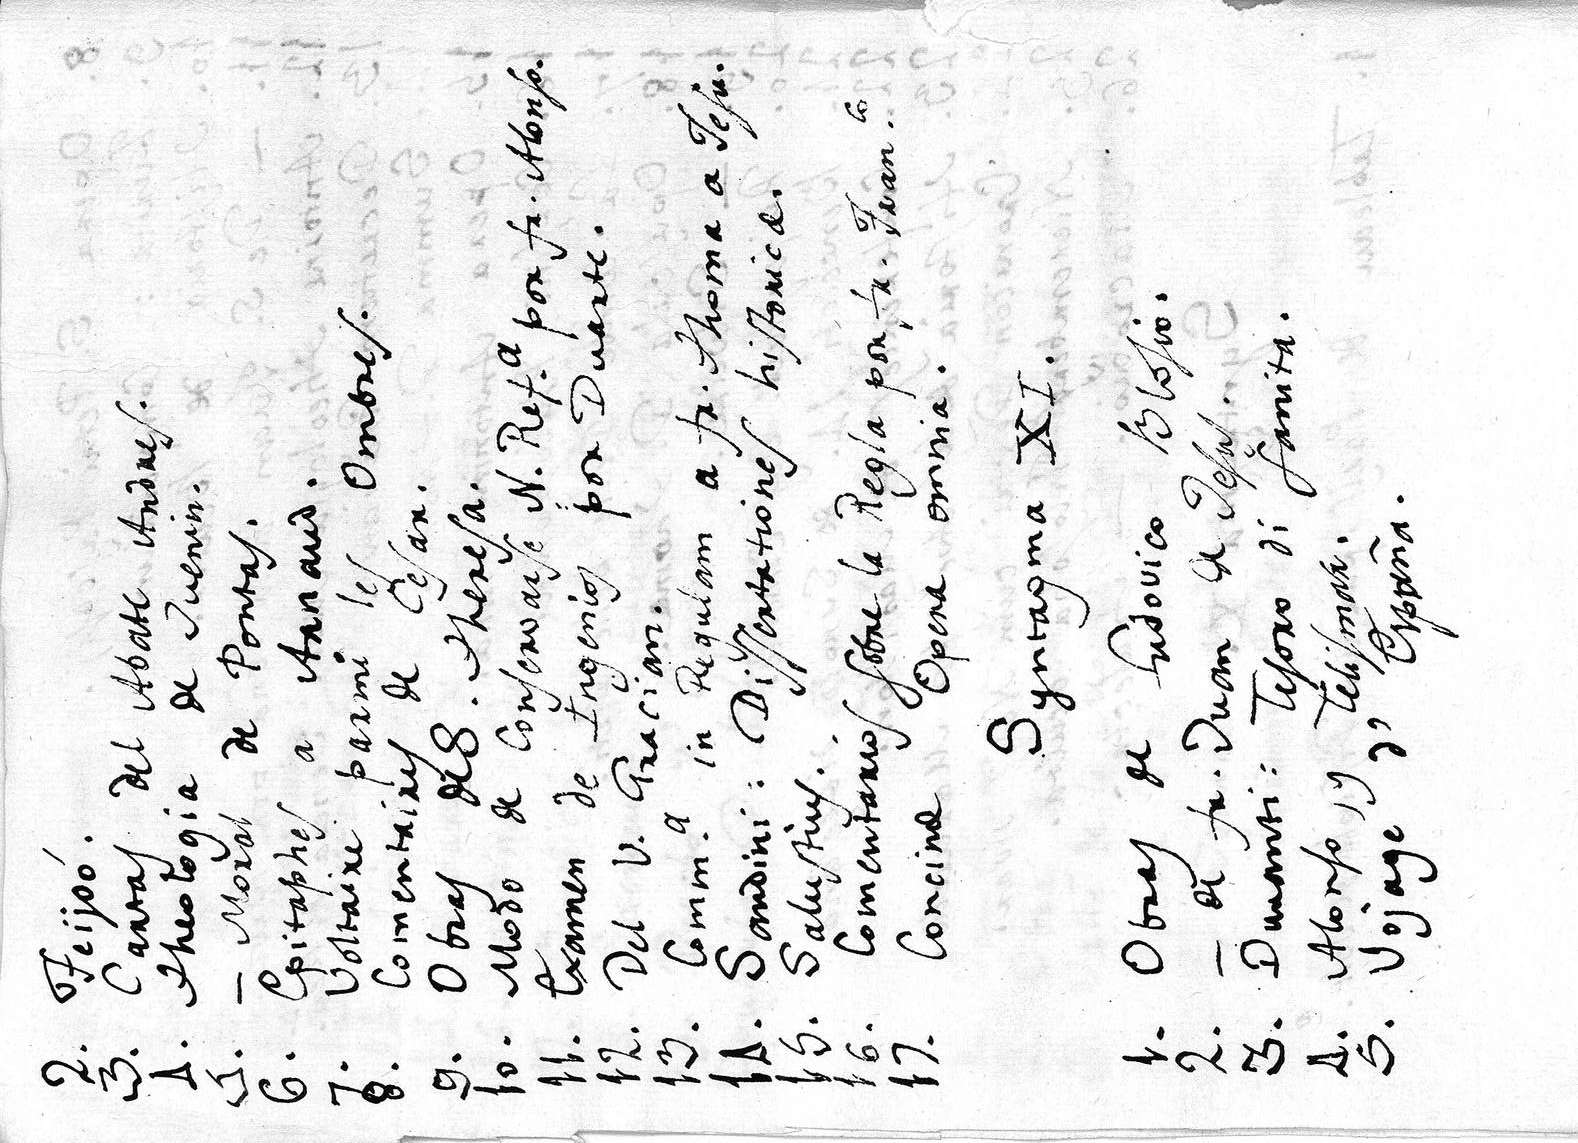 2. Feijoó.
3. Cartas del Abate Andres.
4. Theologia de Juenin.
5. — Moral de Pontas.
6. Epitaphes a Arnaud.
7. Voltaire parmi les Ombres.
8. Comentaires de Cesar.
9. Obras de S. Theresa.
10. Modo de Conservarse N. Ref.a por fr. Alonso.
11. Examen de Ingenios por Duarte.
12. Del V. Gracian.
13. Comm.a in Regulam a fr. Thoma a Jesu.
14. Sandini: Dissertationes historicæ.
15. Salustius.
16. Comentarios sobre la Regla por fr. Fran.co
17. Concinæ Opera omnia.
Syntagma XI.
1. Obras de Ludovico Blosio.
2. — de fr. Juan de Jesus.
3. Duranti: Tesoro di Samita.
4. Alonso y Telismar.
5. Vijage de España.